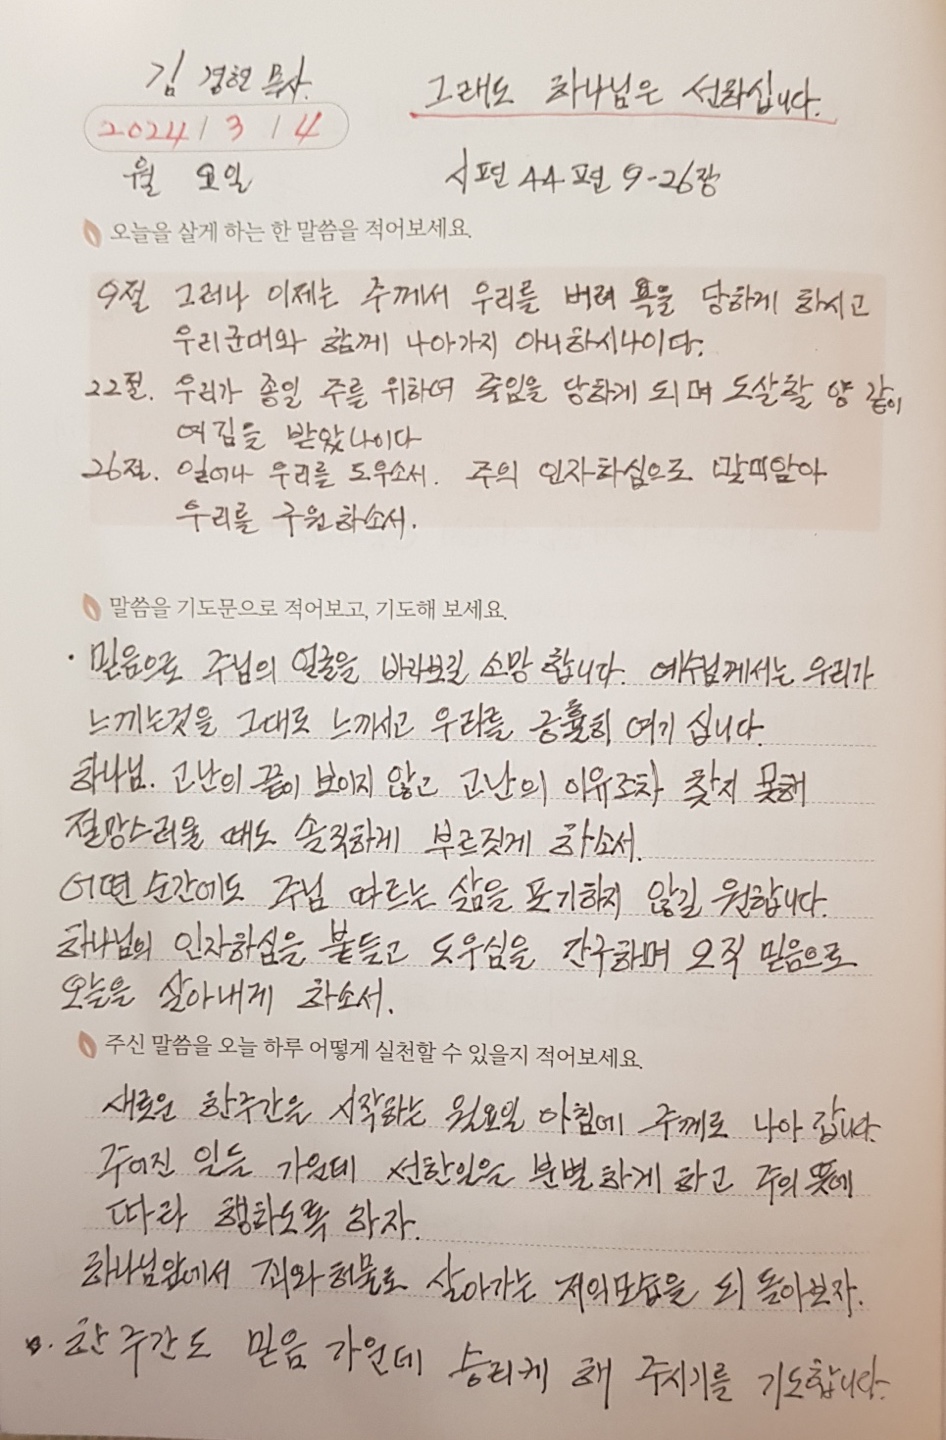 김 경현 목사.
그래도 하나님은 선하십니다.
2024 / 3 / 4
월 요일
시편 44편 9-26장
오늘을 살게 하는 한 말씀을 적어보세요.
9절 그러나 이제는 주께서 우리를 버려 욕을 당하게 하시고
우리군대와 함께 나아가지 아니하시나이다.
22절. 우리가 종일 주를 위하여 죽임을 당하게 되며 도살할 양 같이
여김을 받았나이다
26절. 일어나 우리를 도우소서. 주의 인자하심으로 말미암아
우리를 구원하소서.
말씀을 기도문으로 적어보고, 기도해 보세요.
· 믿음으로 주님의 얼굴을 바라보길 소망 합니다. 예수님께서는 우리가
느끼는것을 그대로 느끼시고 우리를 긍휼히 여기 십니다.
하나님. 고난의 끝이 보이지 않고 고난의 이유조차 찾지 못해
절망스러울 때도 솔직하게 부르짖게 하소서.
어떤 순간에도 주님 따르는 삶을 포기하지 않길 원합니다.
하나님의 인자하심을 붙들고 도우심을 간구하며 오직 믿음으로
오늘을 살아내게 하소서.
주신 말씀을 오늘 하루 어떻게 실천할 수 있을지 적어보세요.
새로운 한주간을 시작하는 월요일 아침에 주께로 나아 갑니다.
주어진 일들 가운데 선한일을 분별하게 하고 주의 뜻에
따라 행하도록 하자.
하나님앞에서 죄와허물로 살아가는 저의모습을 되 돌아보자.
한 주간도 믿음 가운데 승리케 해 주시기를 기도합니다.